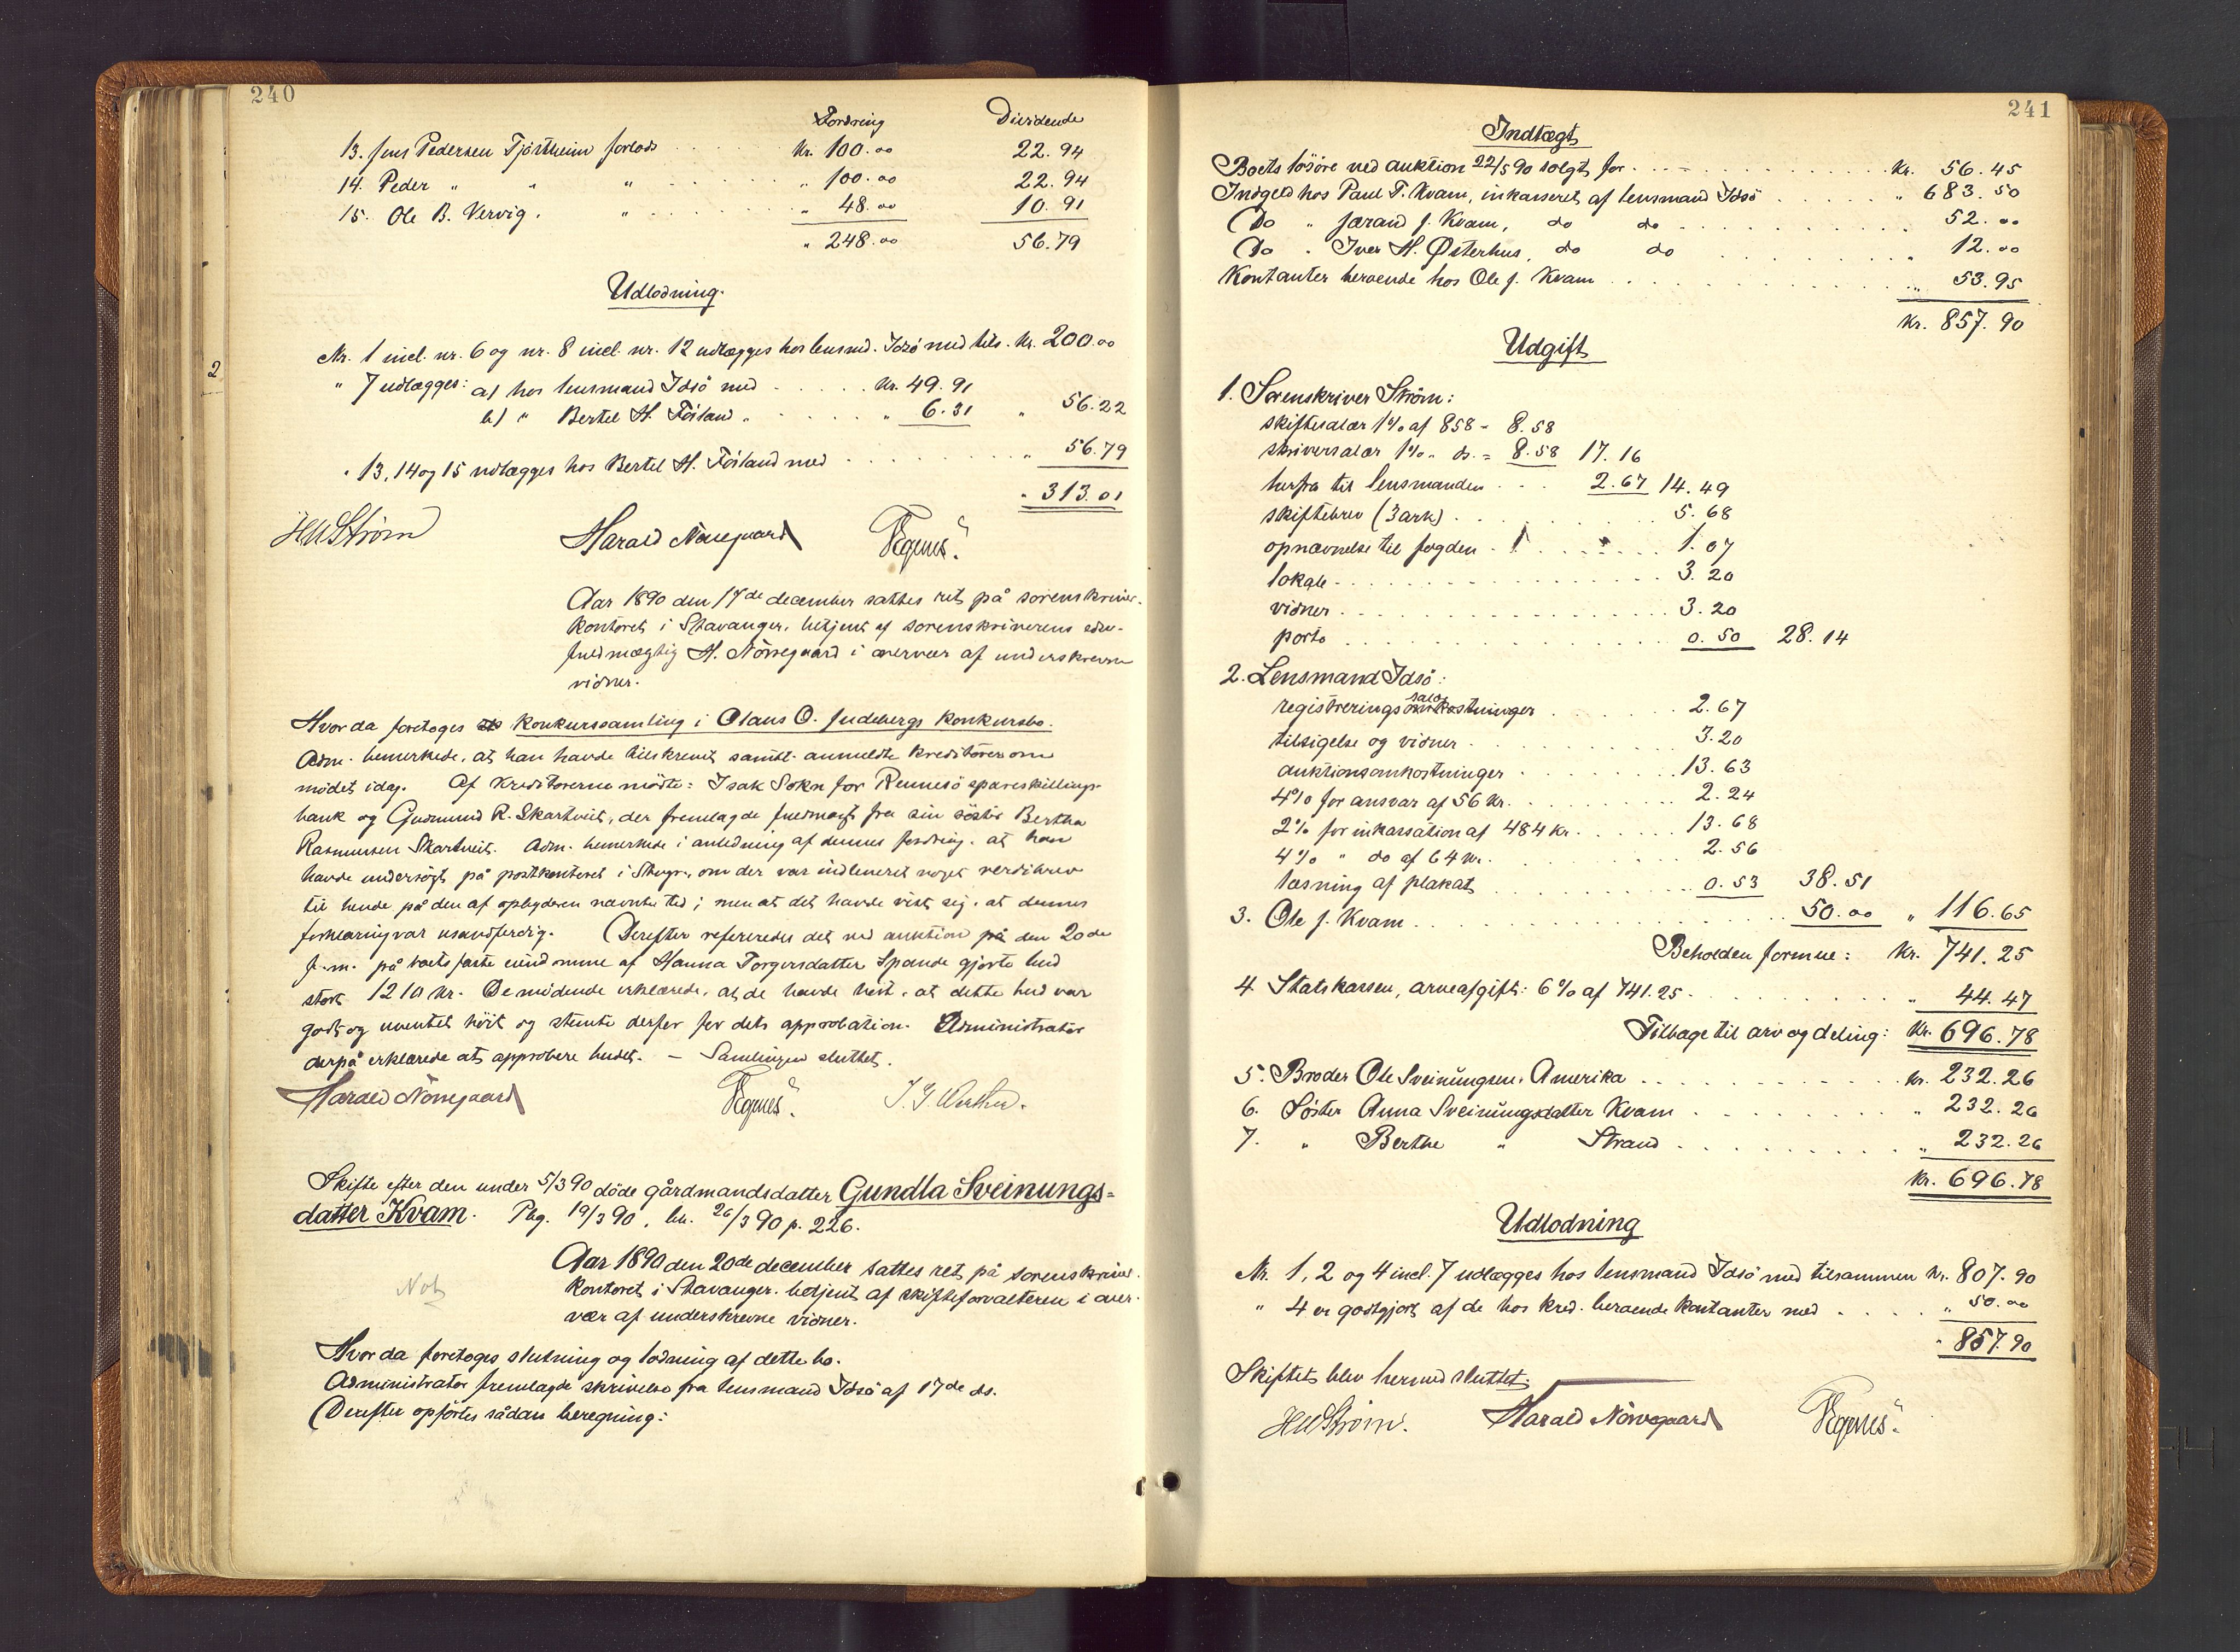 240
Fordring Dividende
13. Jens Pedersen Tjøstheim forlods . . . . . Kr. 100.00 22.94
14. Peder " " " . . . . . . " 100.00 22.94
15. Ole B. Vervig. " . . . . . . . " 48.00 10.91
" 248.00 56.79
Udlodning.
Nr. 1 incl. nr. 6 og nr. 8 incl. nr. 12 udlægges hos lensmd. Idsö med tils. Kr. 200.00
" 7 udlægges: a) hos lensmand Idsö med . . . . . Kr. 49.91
b) " Bertel H. Föiland " . . . . . . " 6.31 " 56.22
" 13, 14 og 15 udlægges hos Bertel H. Föiland med . . . . . . . . " 56.79
" 313.01
HWStrøm Harald Nörregaard Egenes.
Aar 1890 den 17de december sattes ret på sorenskriver-
kontoret i Stavanger, betjent af sorenskriverens edsv.
fuldmægtig H. Nörregaard i overvær af underskrevne
vidner.
Hvor da foretoges konkurssamling i Olaus O. Judebergs konkursbo.
Adm. bemerkede, at han havde tilskrevet samtl. anmeldte kreditorer om
mödet idag. Af kreditorerne mödte: Isak Sokn for Rennesö spareskillings-
bank og Gudmund R. Skartveit, der fremlagde fuldmagt fra sin söster Bertha
Rasmussen Skartveit. Adm. bemerkede i anledning af dennes fordring, at han
havde undersögt på postkontoret i Stvgr., om der var indleveret noget verdibrev
til hende på den af opbyderen nævnte tid; men at det havde vist sig, at dennes
forklaring var usandferdig. Derefter refereredes det ved auktion på den 20de
f.m. på boets faste eiendomme af Hanna Torgersdatter Spande gjorte bud
stort 1210 kr. De mödende erklærede, at de havde hört, at dette bud var
godt og uventet höit og stemte derfor for dets approbation. Administrator
derpå erklærede at approbere budet. — Samlingen sluttet.
Harald Nörregaard Egenes.
Skifte efter den under 5/3 90 döde gårdmandsdatter Gundla Sveinungs=
datter Kvam. Pbg. 19/3 90, bh. 26/3 90 p. 226.
Aar 1890 den 20de december sattes ret på sorenskriver-
kontoret i Stavanger, betjent af skifteforvalteren i over-
vær af underskrevne vidner.
Not
Hvor da foretoges slutning og lodning af dette bo.
Administrator fremlagde skrivelse fra lensmand Idsö af 17de ds.
Derefter opförtes sådan beregning:
2
241
Indtægt
Boets lösöre ved auktion 22/5 90 solgt for . . . . . . . . . Kr. 56.45
Indgeld hos Paul T. Kvam, inkasseret af lensmand Idsö . . . . . " 683.50
Do " Jærand J. Kvam, do do . . . . . . . . . . 52.00
Do " Iver H. Østerhus, do do . . . . . . . . " 12.00
Kontanter beroende hos Ole J. Kvam . . . . . . . . . . . " 53.95
Kr. 857.90
Udgift
1. Sorenskriver Strøm:
skiftesalær 1% af 858 - 8.58
skriversalær 1% " do. = 8.58 17.16
herfra til lensmanden . . . 2.67 14.49
skiftebrev (3 ark) . . . . . . . . . . 5.68
opnævnelse til fogden . . . . . . . 1.07
lokale . . . . . . . . . . . . . . . . 3.20
vidner . . . . . . . . . . . . . . . . 3.20
porto . . . . . . . . . . . . . . . . 0.50 28.14
2. Lensmand Idsö:
registreringssalær . . . . . . 2.67
tilsigelse og vidner . . . . . . . . . 3.20
auktionsomkostninger . . . . . . . 13.63
4% for ansvar af 56 kr. . . . . . . . 2.24
2% for inkassation af 484 kr. . . . . . 13.68
4% " do af 64 kr. . . . . . . . . 2.56
læsning af plakat . . . . . . . . . 0.53 38.51
3. Ole J. Kvam . . . . . . . . . . . . . . . 50.00 " 116.65
Beholden formue: Kr. 741.25
4. Statskassen, arveafgift: 6% af 741.25 . . . . . . . . . . " 44.47
Tilbage til arv og deling: Kr. 696.78
5. Broder Ole Sveinungsen, Amerika . . . . . . . . . . . kr. 232.26
6. Söster Anna Sveinungsdatter Kvam . . . . . . . . . " 232.26
7. " Berthe " Strand . . . . . . . . . . " 232.26
Kr. 696.78
Udlodning
Nr. 1, 2 og 4 incl. 7 udlægges hos lensmand Idsö med tilsammen kr. 807.90
" 4 er godtgjort af de hos kred. beroende kontanter med . . . . . " 50.00
" 857.90
Skiftet blev hermed sluttet.
HWStrøm. Harald Nörregaard Egenes.